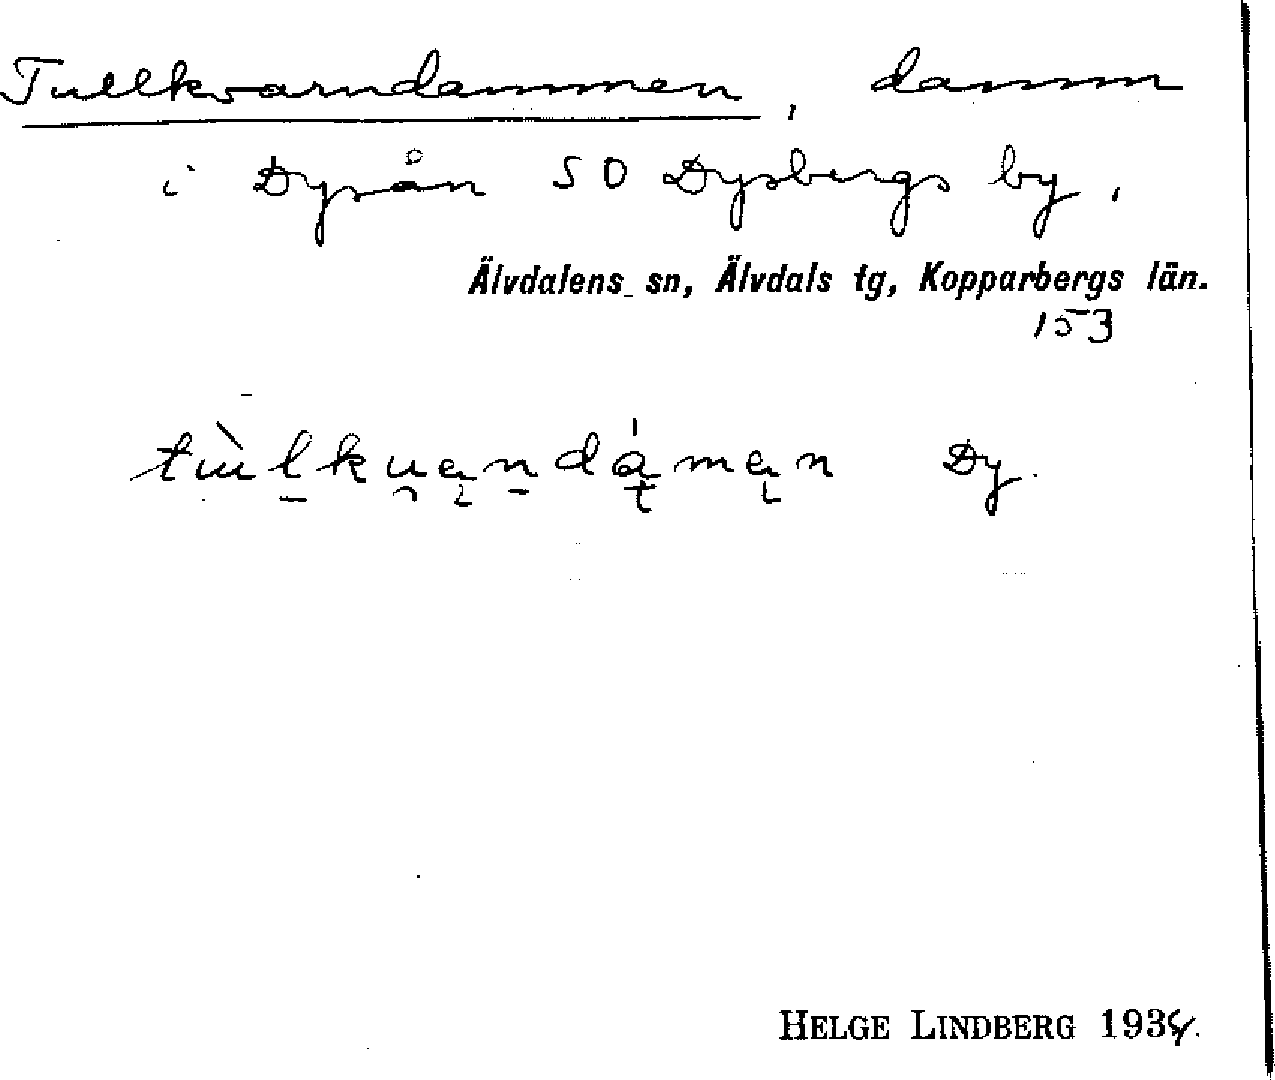 Tullkvarndammen, damm
i Dysån SO Dysbergs by.
Älvdalens sn, Älvdals tg, Kopparbergs län.
153
Dy.
HELGE LINDBERG 1934.